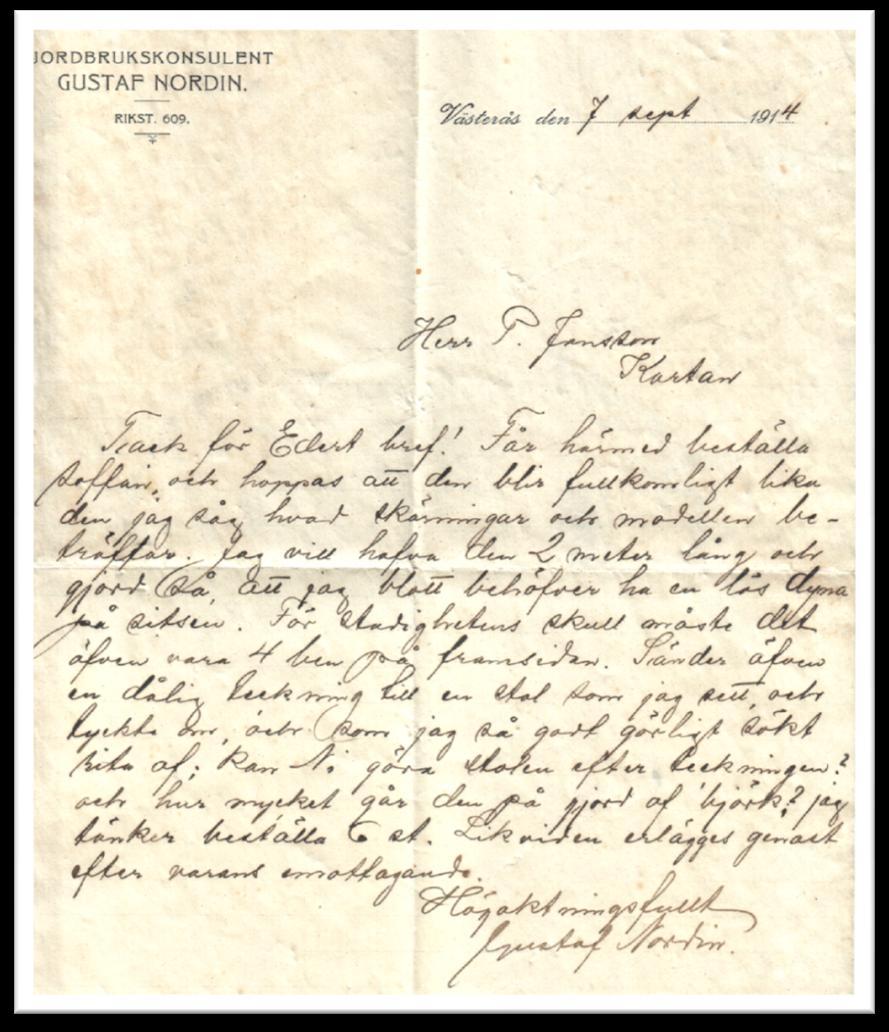 JORDBRUKSKONSULENT
GUSTAF NORDIN.
RIKST. 609.
Västerås den 7 sept 1914
Herr P. Jansson
Kartan
Tack för Edert bref! Får härmed beställa
soffan, och hoppas att den blir fullkomligt lika
den jag såg hvad skärningar och modellen be-
träffar. Jag vill hafva den 2 meter lång och
gjord så, att jag blott behöfver ha en lös dyna
på sitsen. För stadighetens skull måste det
äfven vara 4 ben på framsidan. Sänder äfven
en dålig teckning till en stol som jag sett, och
tyckte om, och som jag så godt görligt sökt
rita af; kan Ni göra stolen efter teckningen?
och hur mycket går den på gjord af björk? jag
tänker beställa 6 st. Likviden erlägges genast
efter varans emottagande.
Högaktningsfullt
Gustaf Nordin.